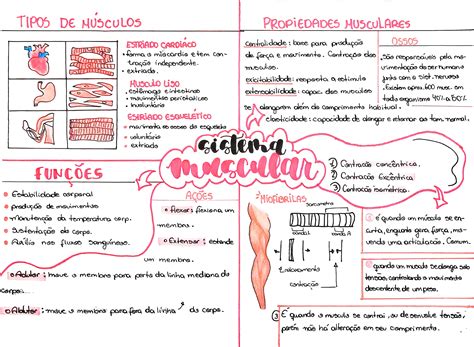 TIPOS DE MÚSCULOS
ESTRIADO CARDÍACO
• forma o miocárdio e tem con-
tração independente.
• estriado.
MÚSCULO LISO
• estômago e intestinos
• movimentos peristálticos
• involuntário
ESTRIADO ESQUELÉTICO
• movimenta os ossos do esqueleto
• voluntário
• estriado.
PROPIEDADES MUSCULARES
contratilidade: base para produção
de força e movimento. Contração dos
músculos.
excitabilidade: resposta a estímulo
extensibilidade: capacidade dos músculos
se alongarem além do comprimento habitual
elasticidade: capacidade de alongar e retornar ao tam. normal
OSSOS
• São responsáveis pela mo-
vimentação do ser humano
junto com o sist. nervoso
• Existem aprox. 600 musc. em
cada organismo 40% a 50%
sistema
muscular
FUNÇÕES
• Estabilidade corporal
• produção de movimentos
• manutenção da temperatura corp.
• Sustentação do corpo
• Auxílio nos fluxos Sanguíneos.
AÇÕES
• flexor: flexiona um
membro.
• Extensor: estende
um membro.
• Adutor: move o membro para perto da linha mediana do
corpo.
• Abdutor: move o membro para fora da linha do corpo.
MIOFIBRILAS
Sarcômero
banda I
banda A
Estiramento
contração
① Contração concêntrica.
② Contração Excêntrica
③ Contração isométrica.
① é quando um músculo se en-
curta, enquanto gera força, mo-
vendo uma articulação. Comum.
quando um músculo se alonga sob
tensão, controlando o movimento
descendente de um peso.
③ É quando o músculo se contrai, ou se desenvolve tensão,
porém não há alteração em seu comprimento.